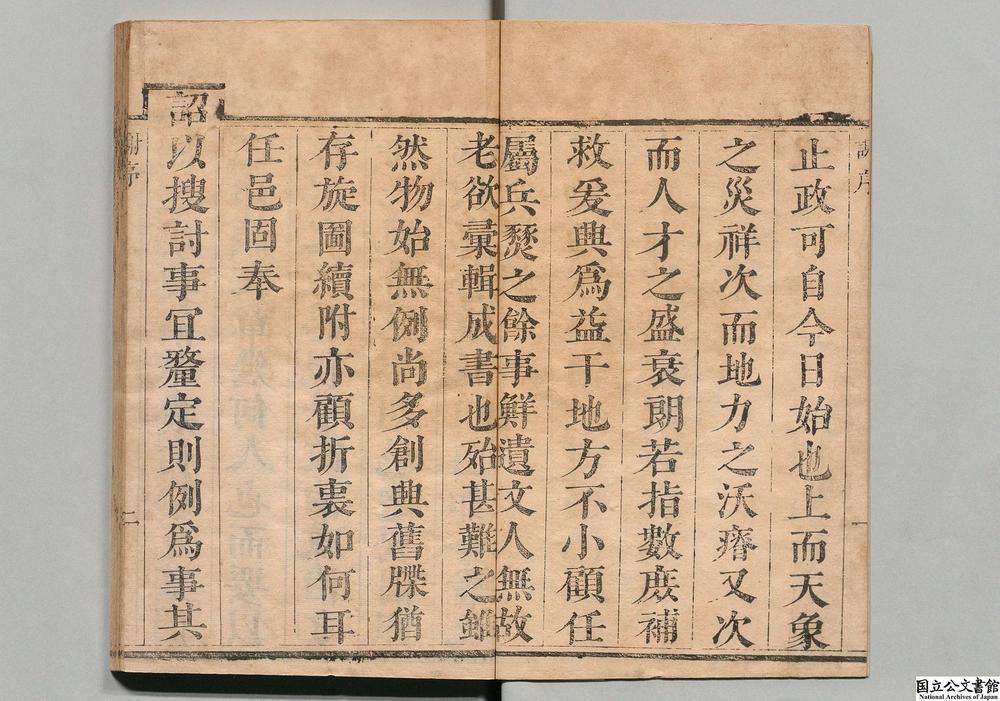 止政可自今日始也上而天象
之災祥次而地力之沃瘠又次
而人才之盛衰朗若指數庶補
救爰興為益于地方不小顧任
屬兵燹之餘事鮮遺文人無故
老欲彙輯成書也殆甚難之雖
然物始無例尚多創典舊牒猶
存旋圖續附亦顧折裏如何耳
任邑固奉
詔以搜討事宜釐定則例為事其
謝序
二
国立公文書館
National Archives of Japan